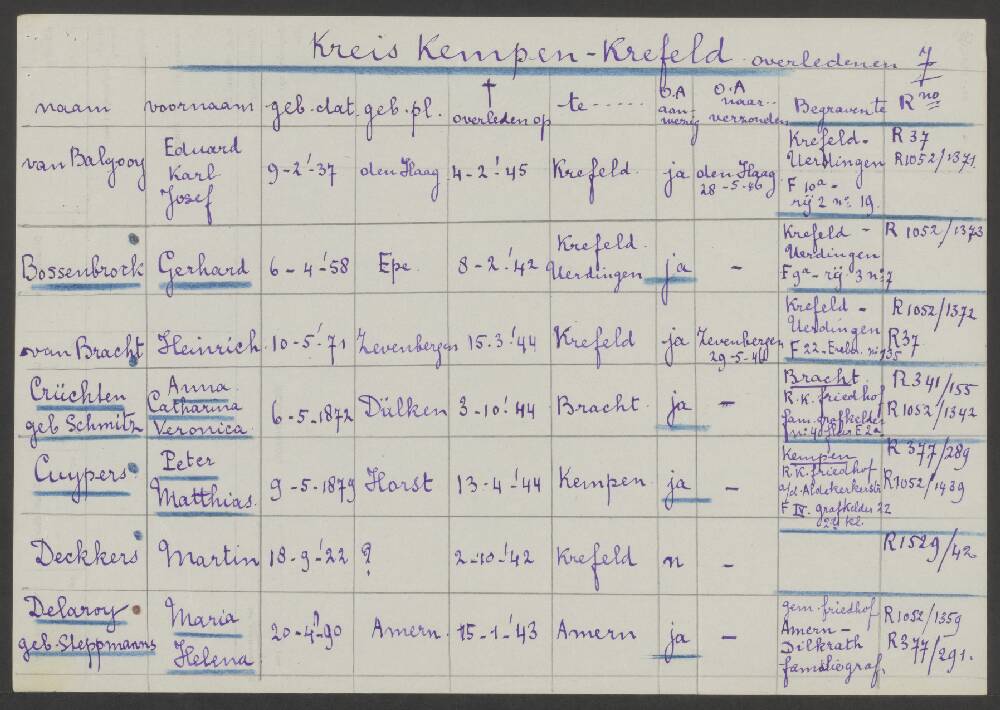 Kreis Kempen-Krefeld overledenen 7
naam voornaam geb.dat. geb.pl. † overleden op te ...... O.A aan-wezig O.A naar.. verzonden Begraven te R no
van Balgooy Eduard Karl Josef 9-2-'37 den Haag 4-2-'45 Krefeld ja den Haag 28-5-46 Krefeld-Uerdingen F 10a - rij 2 no 19. R 37 R1052/1371.
Bossenbroek Gerhard 6-4-'58 Epe 8-2-'42 Krefeld. Uerdingen ja - Krefeld - Uerdingen F 9a - rij 3 no 7 R 1052/1373
van Bracht Heinrich 10-5-'71 Zevenbergen 15.3-'44 Krefeld ja Zevenbergen 29-5-46 Krefeld - Uerdingen F 22 - no 135 R1052/1372 R37
Crüchten geb Schmitz Anna Catharina Veronica 6-5-1872 Dülken 3-10-'44 Bracht ja - Bracht. R.K. friedhof fam. grafkelder no 40 F 2a R341/155 R1052/1342
Cuypers Peter Matthias 9-5-1879 Horst 13-4-'44 Kempen ja - Kempen R.K. friedhof a/d. Aldekerkerstr F IV. grafkelder 22 22 kl. R 377/289 R1052/1439
Deckkers Martin 18-9-'22 ? 2-10-'42 Krefeld n - R1529/42
Delaroy geb. Steppmanns Maria Helena 20-4-'90 Amern. 15-1-'43 Amern ja - gem. friedhof Amern - Dilkrath familiegraf. R1052/1359 R377/291.